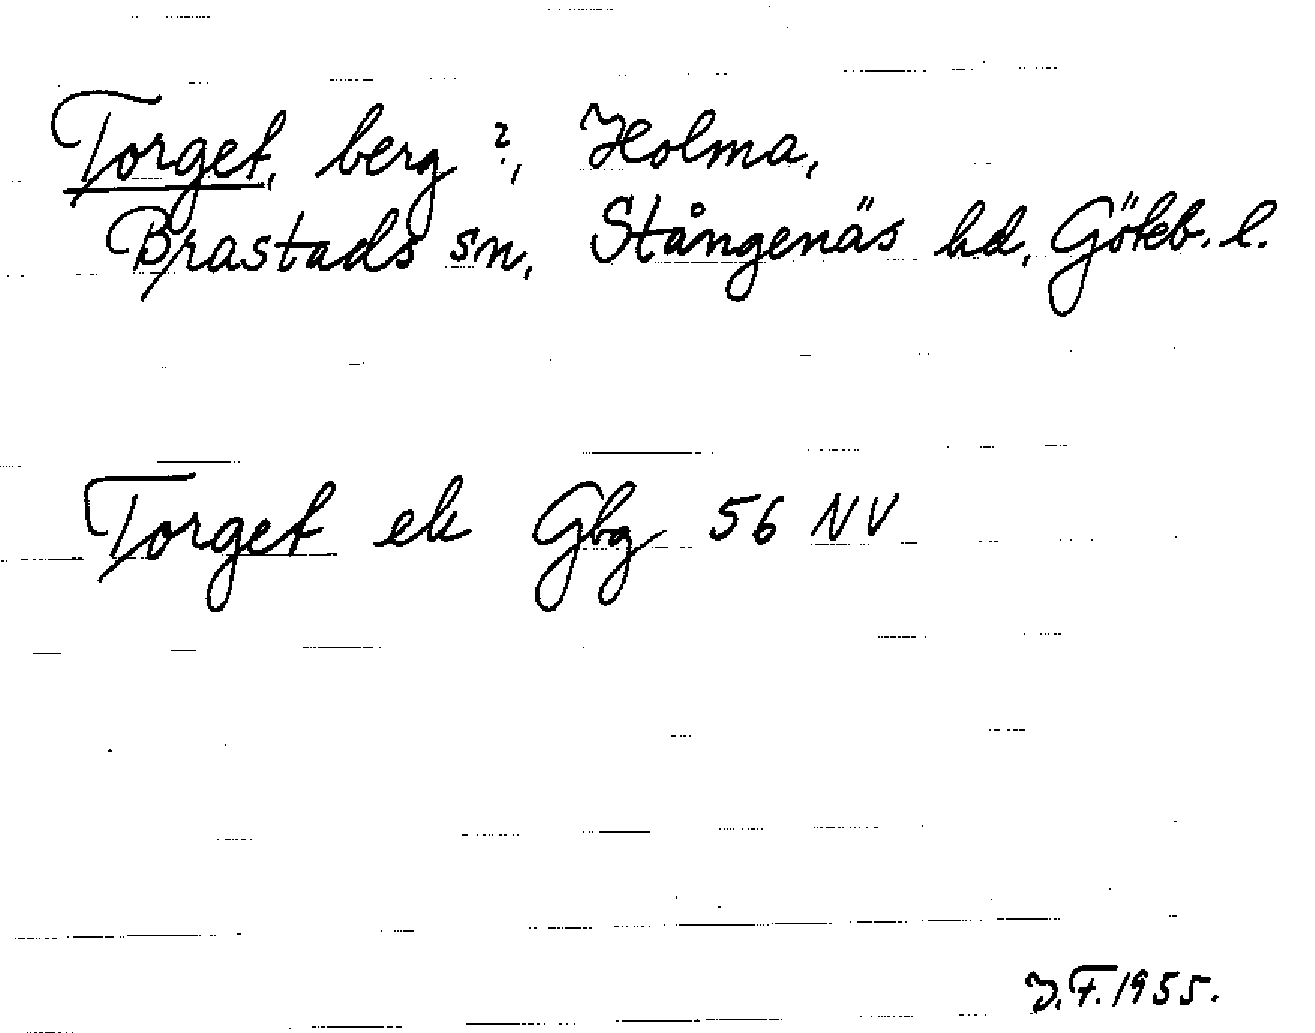 Torget, berg ?, Holma,
Brastads sn, Stångenäs hd, Gökb. l.
Torget ek Gbg 56 NV
J.F. 1955.